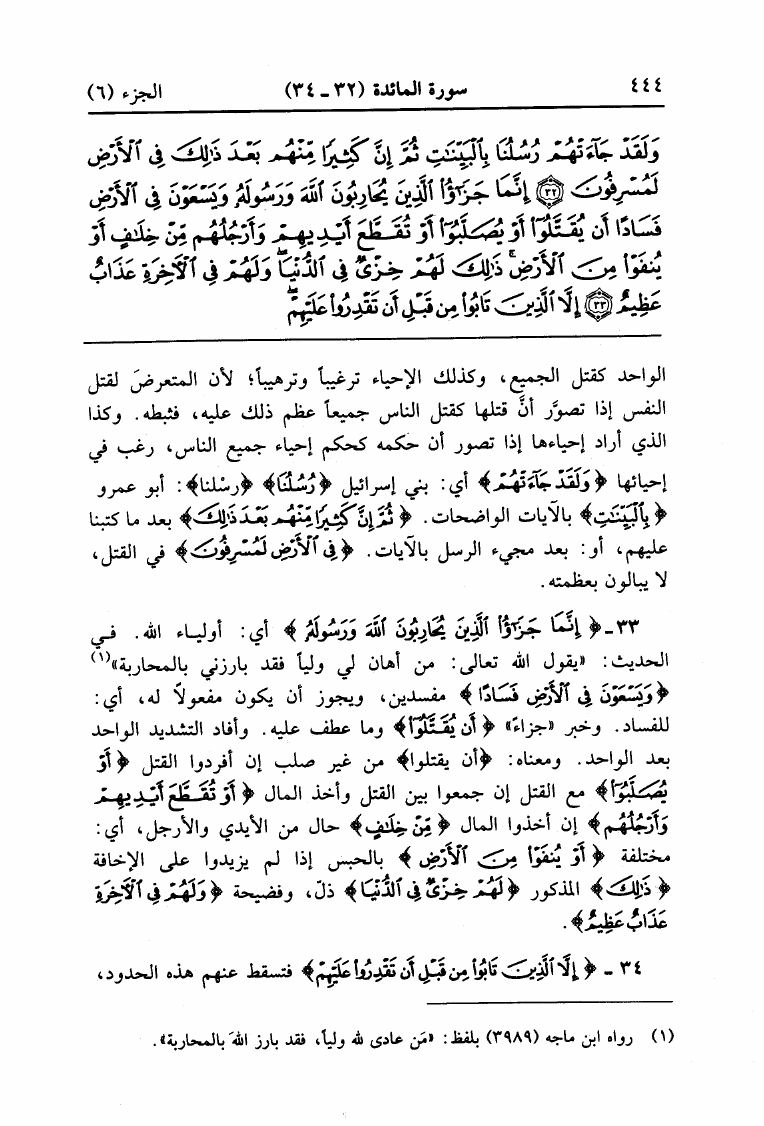 ٤٤٤ سورة المائدة (٣٢ - ٣٤) الجزء (٦)
وَلَقَدْ جَآءَتْهُمْ رُسُلُنَا بِٱلْبَيِّنَٰتِ ثُمَّ إِنَّ كَثِيرًا مِّنْهُم بَعْدَ ذَٰلِكَ فِى ٱلْأَرْضِ
لَمُسْرِفُونَ ٣٢ إِنَّمَا جَزَٰٓؤُا۟ ٱلَّذِينَ يُحَارِبُونَ ٱللَّهَ وَرَسُولَهُۥ وَيَسْعَوْنَ فِى ٱلْأَرْضِ
فَسَادًا أَن يُقَتَّلُوٓا۟ أَوْ يُصَلَّبُوٓا۟ أَوْ تُقَطَّعَ أَيْدِيهِمْ وَأَرْجُلُهُم مِّنْ خِلَٰفٍ أَوْ
يُنفَوْا۟ مِنَ ٱلْأَرْضِ ۚ ذَٰلِكَ لَهُمْ خِزْىٌ فِى ٱلدُّنْيَا ۖ وَلَهُمْ فِى ٱلْءَاخِرَةِ عَذَابٌ
عَظِيمٌ ٣٣ إِلَّا ٱلَّذِينَ تَابُوا۟ مِن قَبْلِ أَن تَقْدِرُوا۟ عَلَيْهِمْ ۖ
الواحد كقتل الجميع، وكذلك الإحياء ترغيباً وترهيباً؛ لأن المتعرضَ لقتل
النفس إذا تصوَّر أنَّ قتلها كقتل الناس جميعاً عظم ذلك عليه، فثبطه. وكذا
الذي أراد إحياءها إذا تصور أن حكمه كحكم إحياء جميع الناس، رغب في
إحيائها ﴿وَلَقَدْ جَآءَتْهُمْ﴾ أي: بني إسرائيل ﴿رُسُلُنَا﴾ ﴿رسْلنا﴾: أبو عمرو
﴿بِٱلْبَيِّنَٰتِ﴾ بالآيات الواضحات. ﴿ثُمَّ إِنَّ كَثِيرًا مِّنْهُم بَعْدَ ذَٰلِكَ﴾ بعد ما كتبنا
عليهم، أو: بعد مجيء الرسل بالآيات. ﴿فِى ٱلْأَرْضِ لَمُسْرِفُونَ﴾ في القتل،
لا يبالون بعظمته.
٣٣ - ﴿إِنَّمَا جَزَٰٓؤُا۟ ٱلَّذِينَ يُحَارِبُونَ ٱللَّهَ وَرَسُولَهُۥ﴾ أي: أولياء الله. في
الحديث: «يقول الله تعالى: من أهان لي ولياً فقد بارزني بالمحاربة»(١)
﴿وَيَسْعَوْنَ فِى ٱلْأَرْضِ فَسَادًا﴾ مفسدين، ويجوز أن يكون مفعولاً له، أي:
للفساد. وخبر «جزاءُ» ﴿أَن يُقَتَّلُوٓا۟﴾ وما عطف عليه. وأفاد التشديد الواحد
بعد الواحد. ومعناه: ﴿أن يقتلوا﴾ من غير صلب إن أفردوا القتل ﴿أَوْ
يُصَلَّبُوٓا۟﴾ مع القتل إن جمعوا بين القتل وأخذ المال ﴿أَوْ تُقَطَّعَ أَيْدِيهِمْ
وَأَرْجُلُهُم﴾ إن أخذوا المال ﴿مِّنْ خِلَٰفٍ﴾ حال من الأيدي والأرجل، أي:
مختلفة ﴿أَوْ يُنفَوْا۟ مِنَ ٱلْأَرْضِ﴾ بالحبس إذا لم يزيدوا على الإخافة
﴿ذَٰلِكَ﴾ المذكور ﴿لَهُمْ خِزْىٌ فِى ٱلدُّنْيَا﴾ ذلّ، وفضيحة ﴿وَلَهُمْ فِى ٱلْءَاخِرَةِ
عَذَابٌ عَظِيمٌ﴾.
٣٤ - ﴿إِلَّا ٱلَّذِينَ تَابُوا۟ مِن قَبْلِ أَن تَقْدِرُوا۟ عَلَيْهِمْ﴾ فتسقط عنهم هذه الحدود،
(١) رواه ابن ماجه (٣٩٨٩) بلفظ: «مَن عادى لله ولياً، فقد بارز اللهَ بالمحاربة».